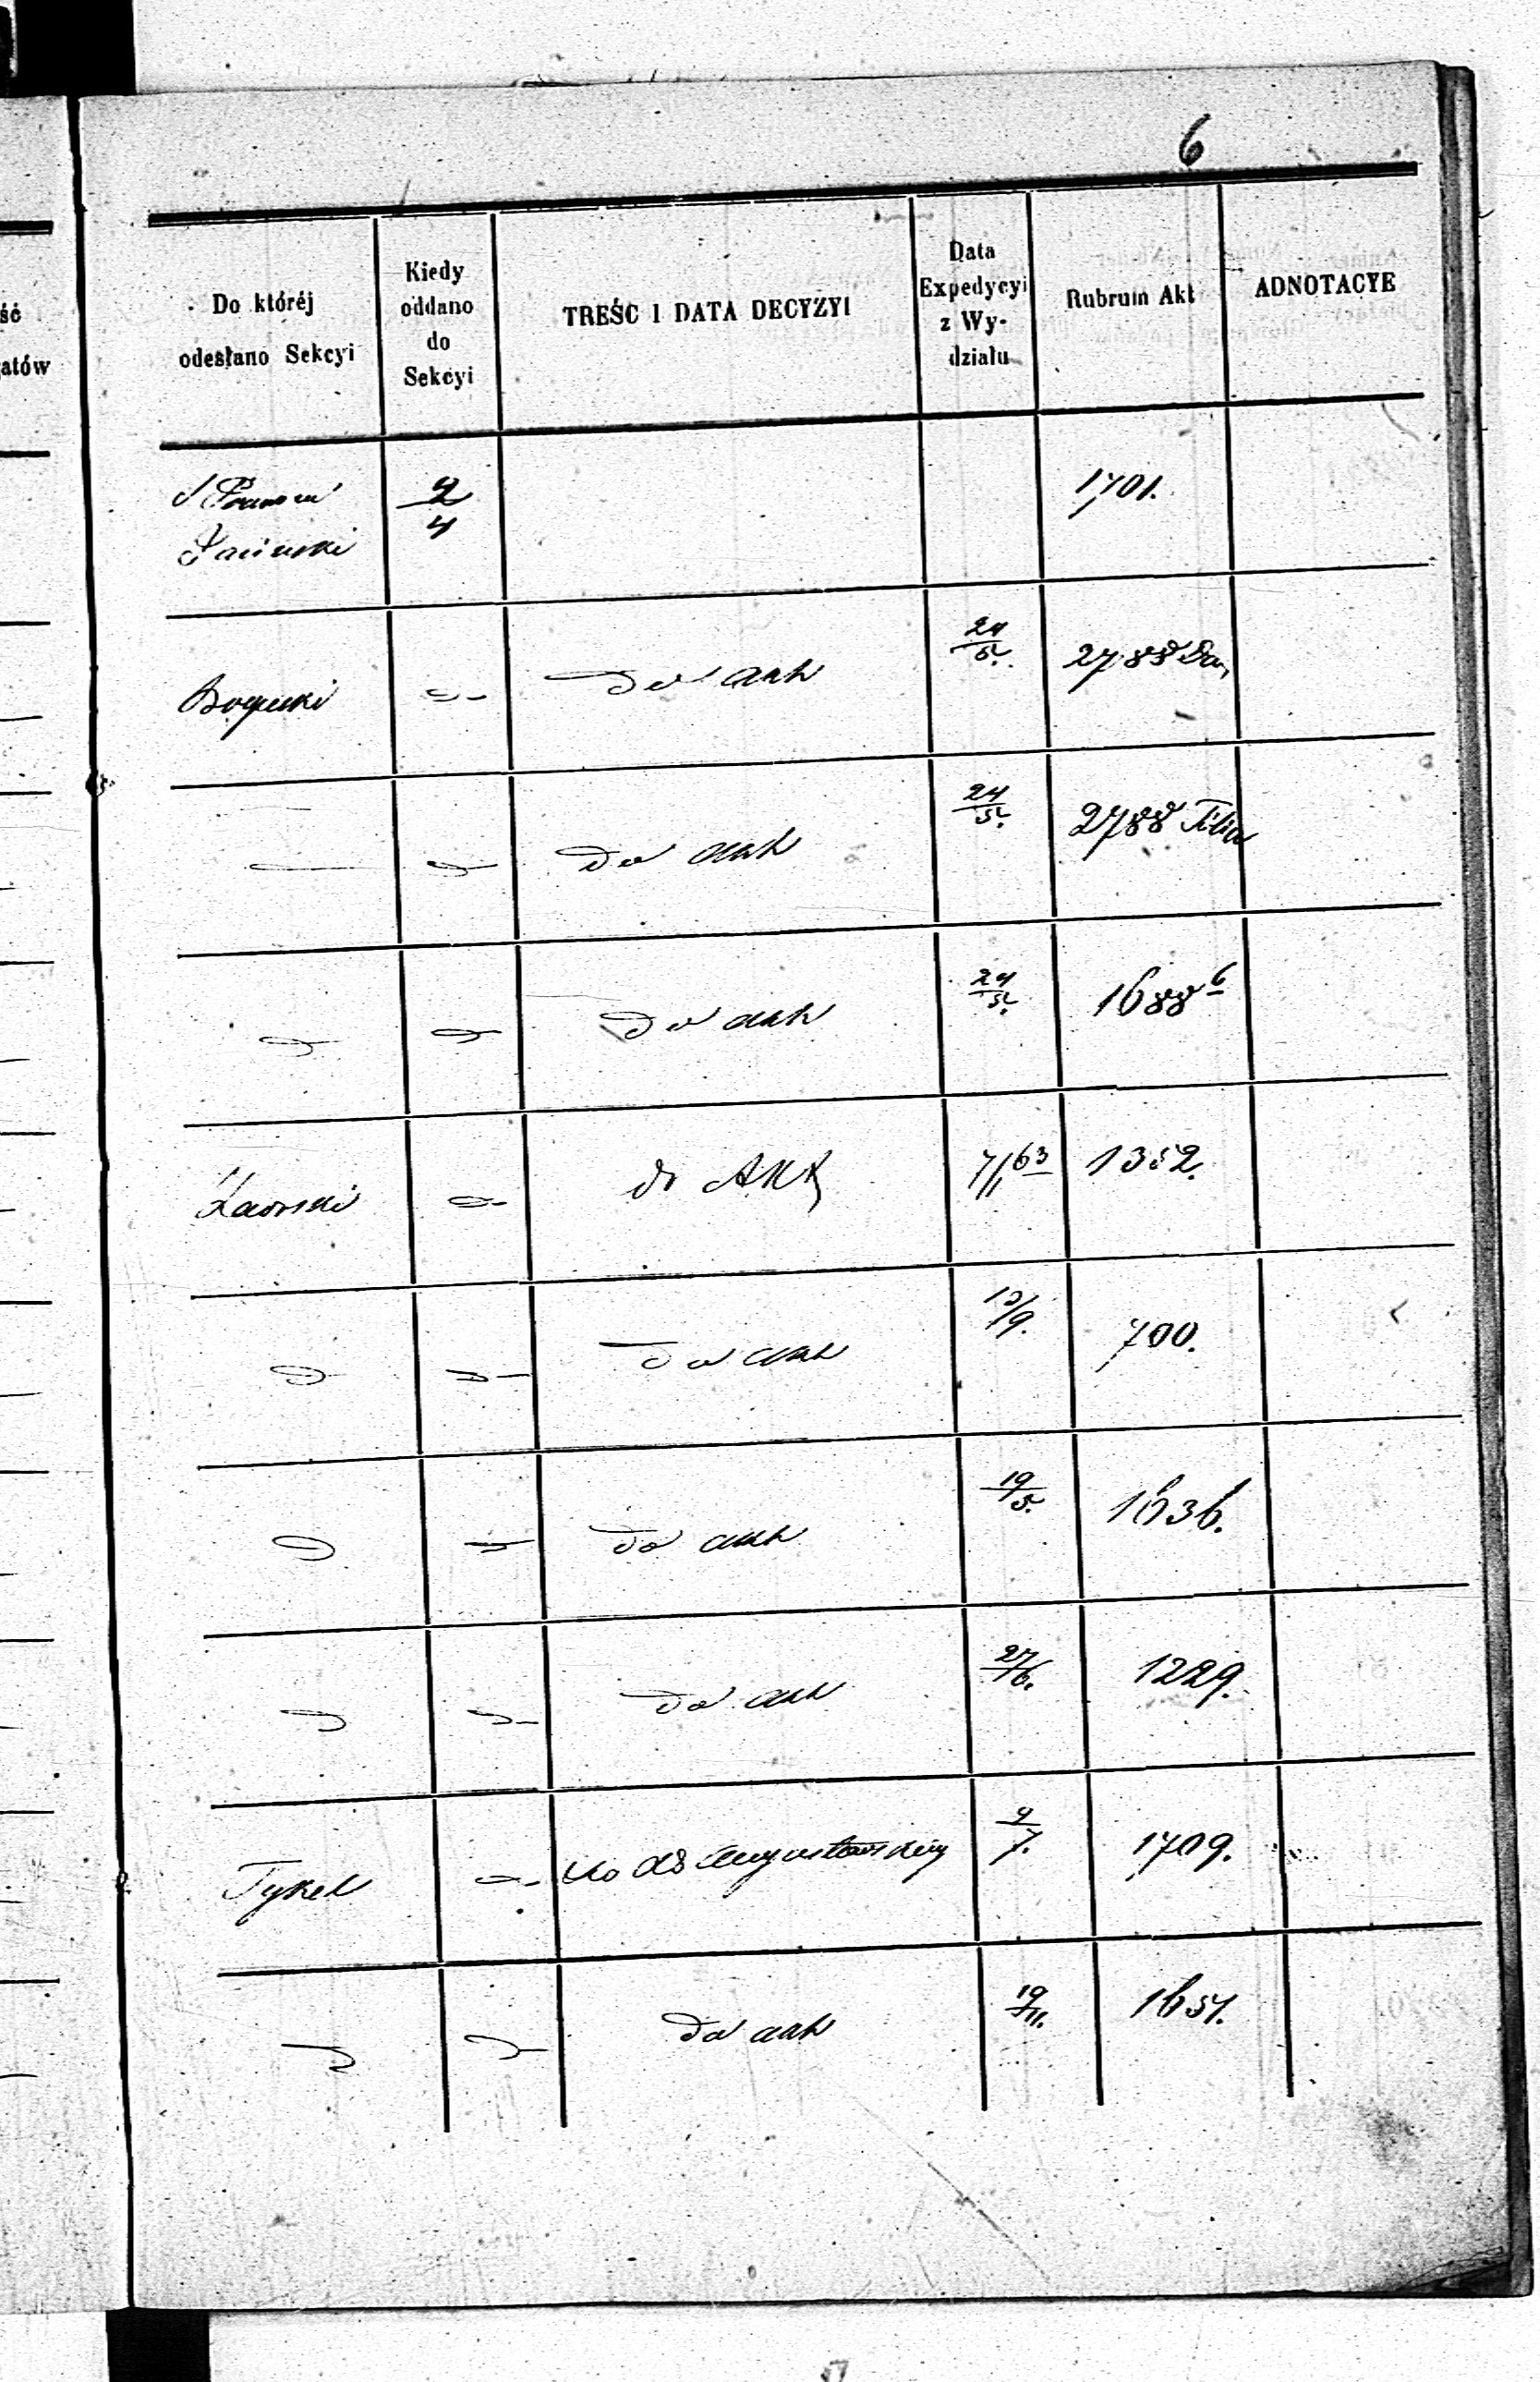 6
ść
atów
Do któréj
odesłano Sekcyi
Kiedy
oddano
do
Sekcyi
TREŚC I DATA DECYZYI
Data
Expedycyi
z Wy-
działu
Rubrum Akt
ADNOTACYE
2/4
1701.
Bogucki
do akt
24/5.
2788
do akt
24/5.
2788 Filia
do akt
24/5.
1688 6
do Akt
7/11 63
1352.
do akt
13/9.
700.
do akt
19/5.
1636.
do akt
27/6.
1229.
Tykel
do Augustowskiej
9/7.
1709.
do akt
19/11.
1651.